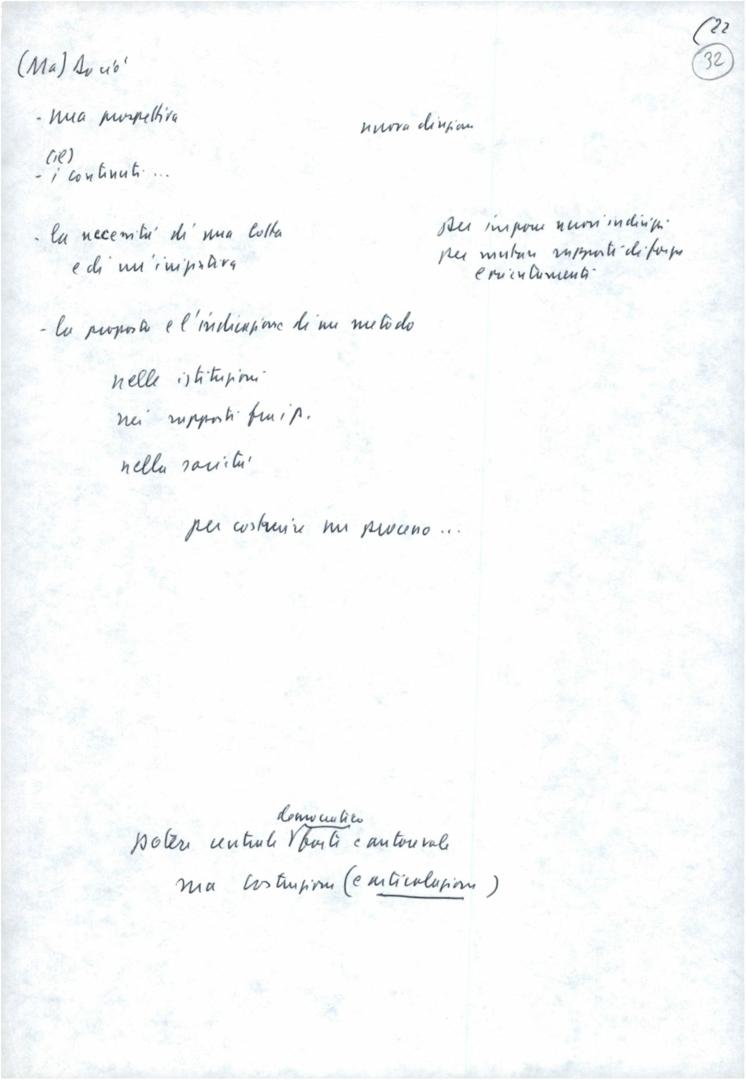 (22
32
(Ma) Perciò
- una prospettiva
nuova direzione
(il)
- i contenuti ...
- la necessità di una lotta
per imporre nuovi indirizzi
e di un'iniziativa
per mutare rapporti di forza
e orientamenti
- la proposta e l'indicazione di un metodo
nelle istituzioni
nei rapporti fra i p.
nella società
per costruire un processo ...
democratico
potere centrale forte e autorevole
ma costruzione (e articolazione)